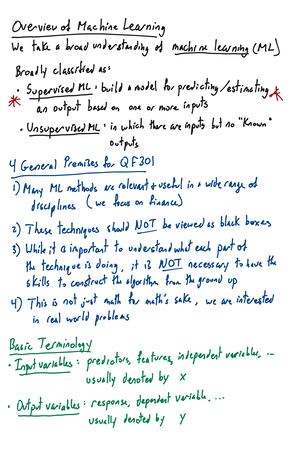 Overview of Machine Learning
We take a broad understanding of machine learning (ML)
Broadly classified as:
• Supervised ML: build a model for predicting/estimating
an output based on one or more inputs
• Unsupervised ML: in which there are inputs but no "Known"
outputs
4 General Premises for QF301
1) Many ML methods are relevant + useful in a wide range of
disciplines (we focus on finance)
2) These techniques should NOT be viewed as black boxes
3) While it is important to understand what each part of
the technique is doing, it is NOT necessary to have the
skills to construct the algorithm from the ground up
4) This is not just math for math's sake, we are interested
in real world problems
Basic Terminology
• Input variables: predictors, features, independent variables, ...
usually denoted by x
• Output variables: response, dependent variable, ...
usually denoted by y